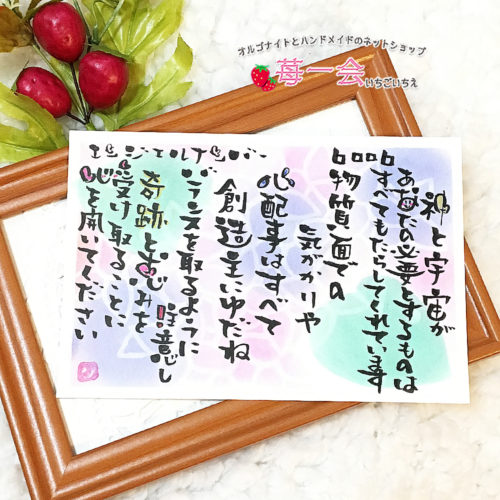 オルゴナイトとハンドメイドのネットショップ
苺一会
いちごいちえ
エンジェルナンバー
0000
神と宇宙が
あなたの必要とするものは
すべてもたらしてくれています
物質面での
気がかりや
心配事はすべて
創造主にゆだね
バランスを取るように
注意し
奇跡と恵みを
受け取ることに
心を開いてください